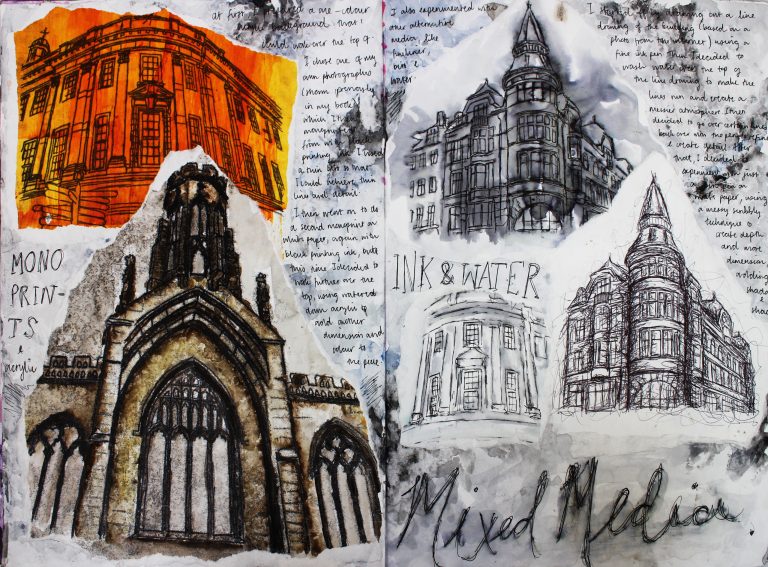 at first I a one-colour
background that I
could work over the top of.
I chose one of my
own photographs
(shown previously
in my book)
which I
monoprinted
from with
printing ink. I used
a thin to that
I could achieve thin
line and detail.
I then went on to do
a second monoprint on
white paper, again with
black printing ink, but
this time I decided to
work further over the
top, using watered
down acrylic to
add another
dimension and
colour to
the piece.
MONO
PRIN-
TS
&
acrylic
I also experimented with
other alternative
media, like
fineliner,
&
water.
INK & WATER
I started by out a line
drawing of the building (based on a
photo from the internet) using a
fine ink pen. Then I decided to
wash water over the top of
the line drawing to make the
lines run and create a
messier atmosphere. I then
decided to go over certain lines
back over with the pen
& create detail. After
that, I decided to
experiment with just
pen on
paper, using
a messy scribbly
technique to
create depth
and more
dimension,
adding
shadow
&
Mixed Media